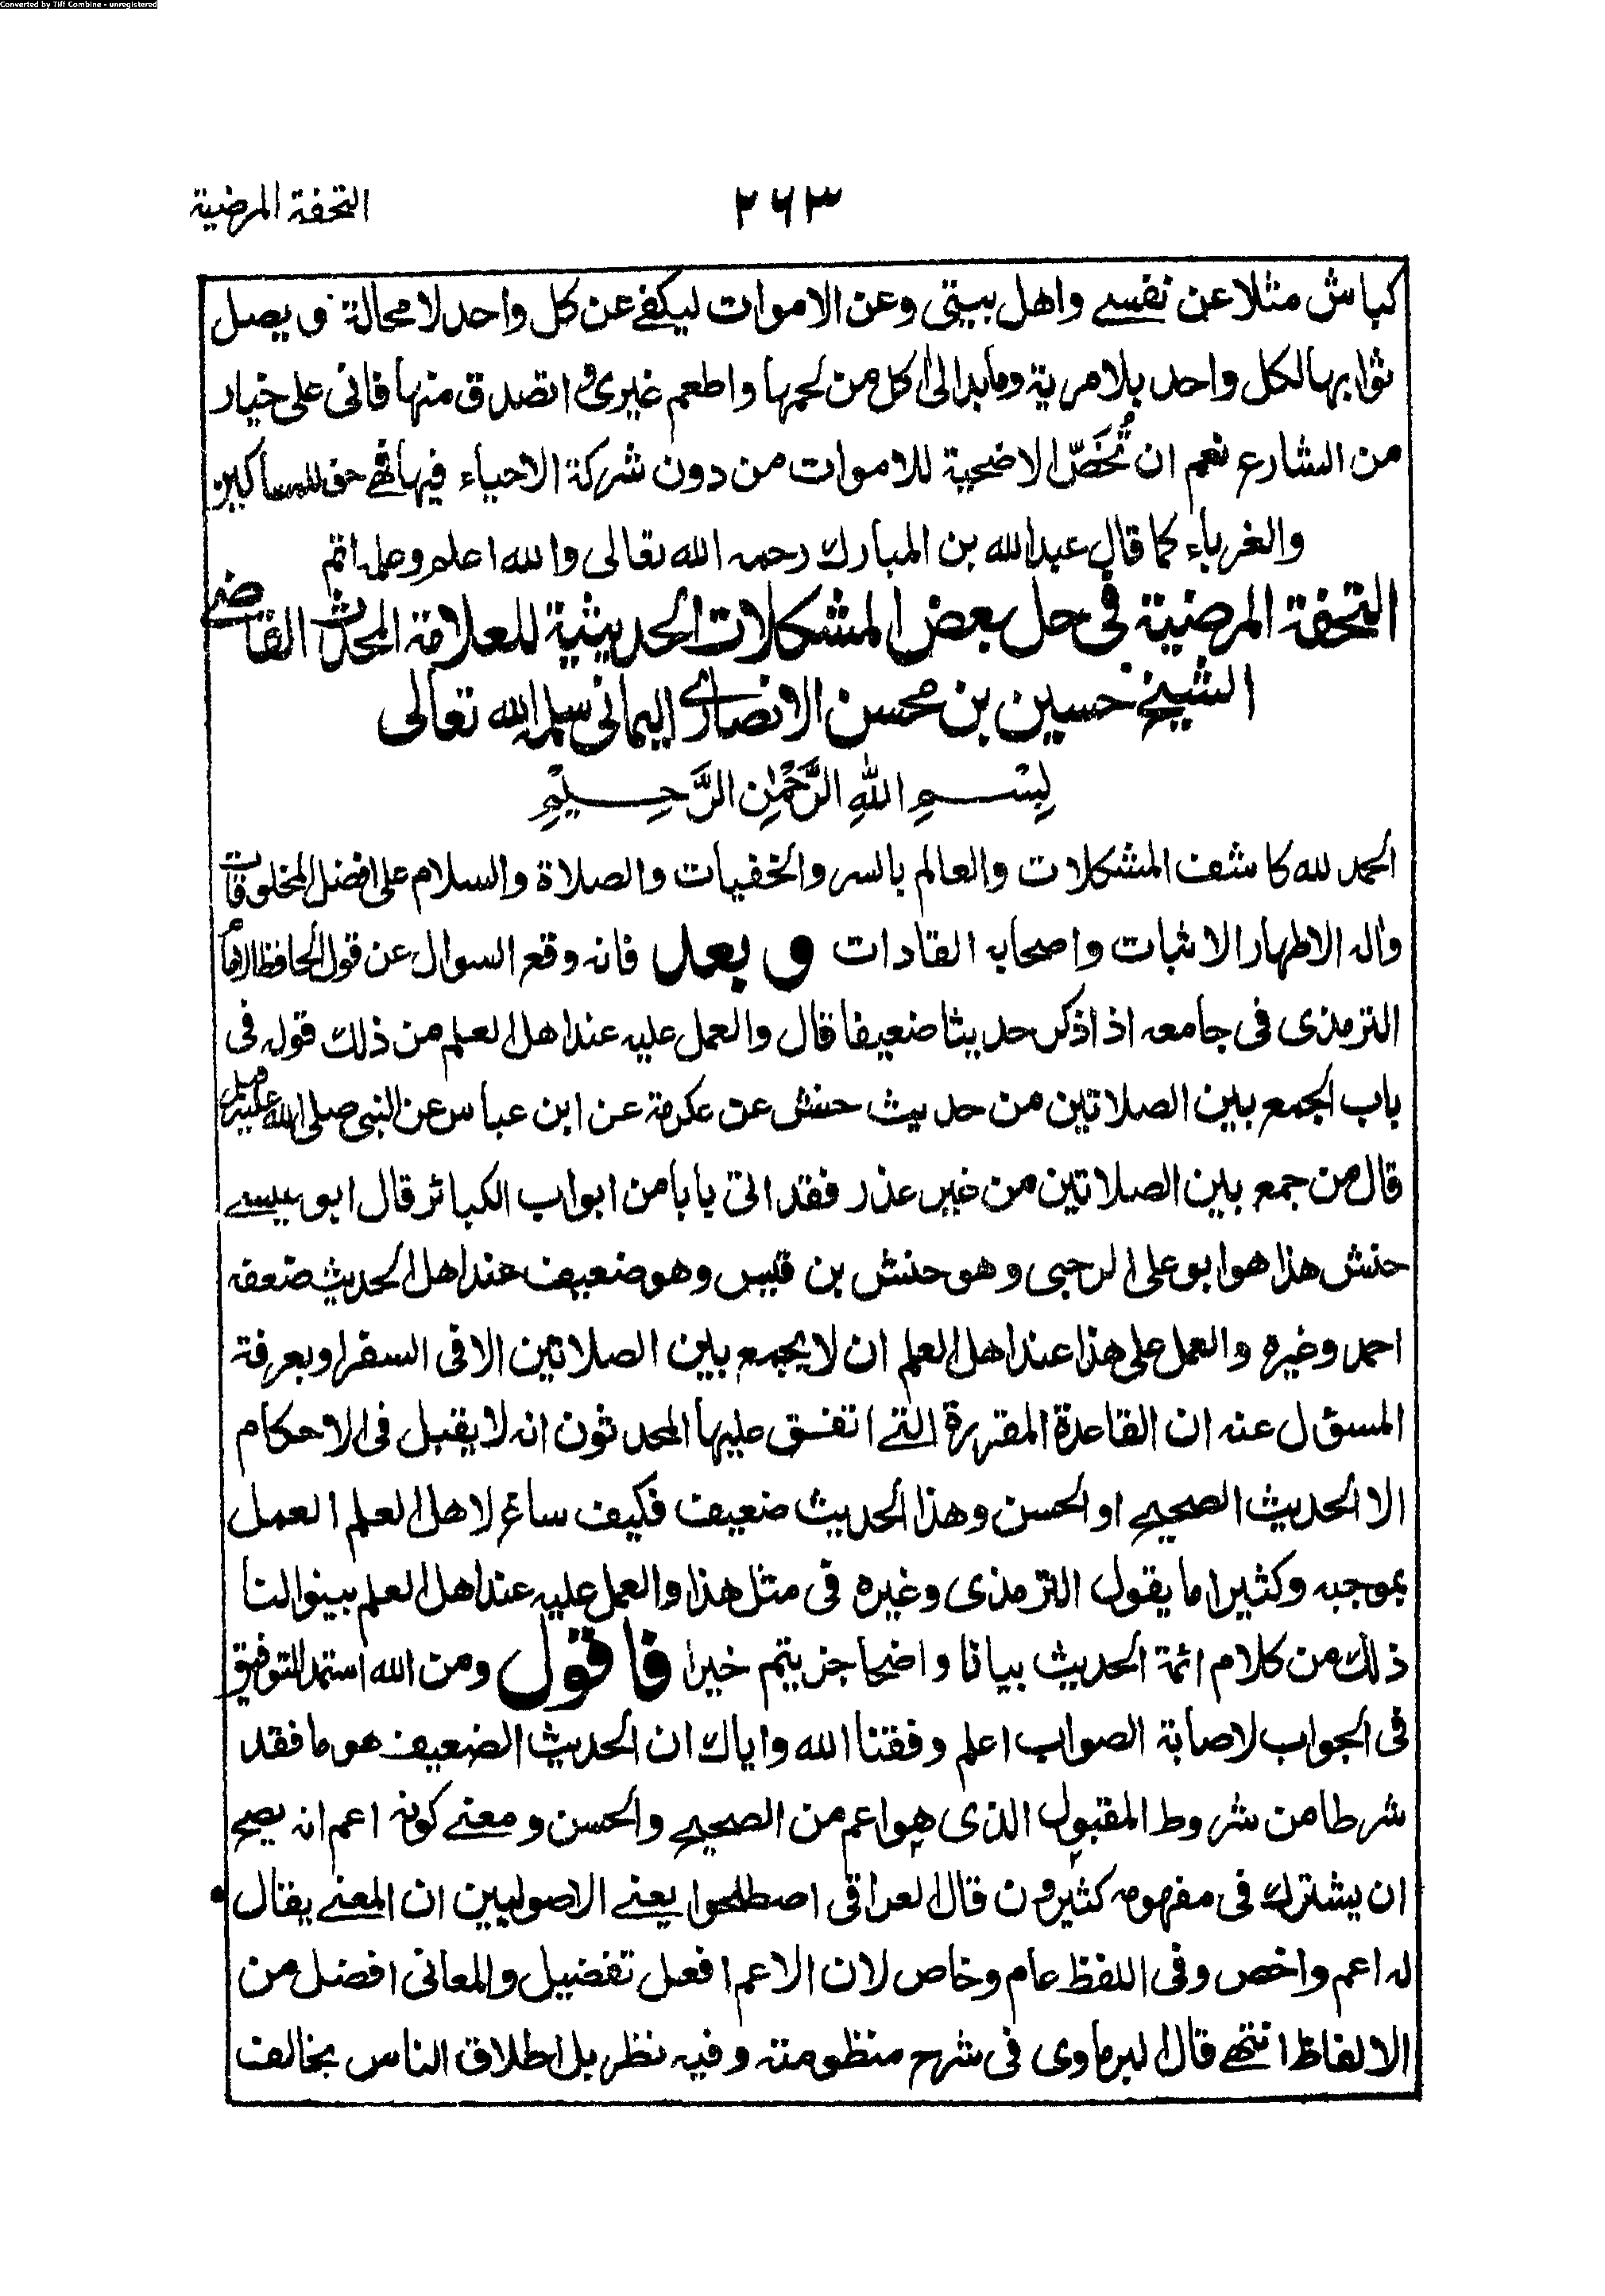 Converted by Tiff Combine - unregistered
التحفة المرضية
٢٦٣
كباش مثلا عن نفسے واهل بيتى وعن الاموات ليكفے عن كل واحد لا محالة ويصل
ثوابها لكل واحد بلا مرية وما بدا لى اٰكل من لحمها واطعم غيرى واتصدق منها فانى على خيار
من الشارع نعم ان تُخَصّ الاضحية للاموات من دون شركة الاحياء فيها فهے حق للمساكين
والغرباء كما قال عبدالله بن المبارك رحمه الله تعالى والله اعلم وعلمه اتم
التحفة المرضية فى حل بعض المشكلات الحديثية للعلامة المحدث القاضے
الشيخ حسين بن محسن الانصارے اليمانى سلمه الله تعالى
بِسْمِ اللهِ الرَّحْمٰنِ الرَّحِيْمِ
الحمد لله كاشف المشكلات والعالم بالسر والخفيات والصلاة والسلام على افضل المخلوقات
واٰله الاطهار الاثبات واصحابه القادات وبعد فانه وقع السوال عن قول الحافظ الامام
الترمذى فى جامعه اذا ذكر حديثا ضعيفا قال والعمل عليه عند اهل العلم من ذلك قوله فى
باب الجمع بين الصلاتين من حديث حنش عن عكرمة عن ابن عباس عن النبى صلى الله عليه وسلم
قال من جمع بين الصلاتين من غير عذر فقد اتى بابا من ابواب الكبائر قال ابو عيسے
حنش هذا هو ابو على الرحبى وهو حنش بن قيس وهو ضعيف عند اهل الحديث ضعفه
احمد وغيره والعمل على هذا عند اهل العلم ان لا يجمع بين الصلاتين الا فى السفر او بعرفة
المسؤل عنه ان القاعدة المقررة التے اتفق عليها المحدثون انه لا يقبل فى الاحكام
الا الحديث الصحيح او الحسن وهذا الحديث ضعيف فكيف ساغ لاهل العلم العمل
بموجبه وكثيرا ما يقول الترمذى وغيره فى مثل هذا والعمل عليه عند اهل العلم بينوا لنا
ذلك من كلام ائمة الحديث بيانا واضحا جزيتم خيرا فاقول ومن الله استمد التوفيق
فى الجواب لاصابة الصواب اعلم وفقنا الله واياك ان الحديث الضعيف هو ما فقد
شرطا من شروط المقبول الذى هو اعم من الصحيح والحسن ومعنے كونه اعم انه يصح
ان يشترك فى مفهومه كثيرون قال العراقى اصطلحوا يعنے الاصوليين ان المعنے يقال
له اعم واخص وفى اللفظ عام وخاص لان الاعم افعل تفضيل والمعانى افضل من
الالفاظ انتهے قال البرماوى فى شرح منظومته وفيه نظر بل اطلاق الناس يخالف